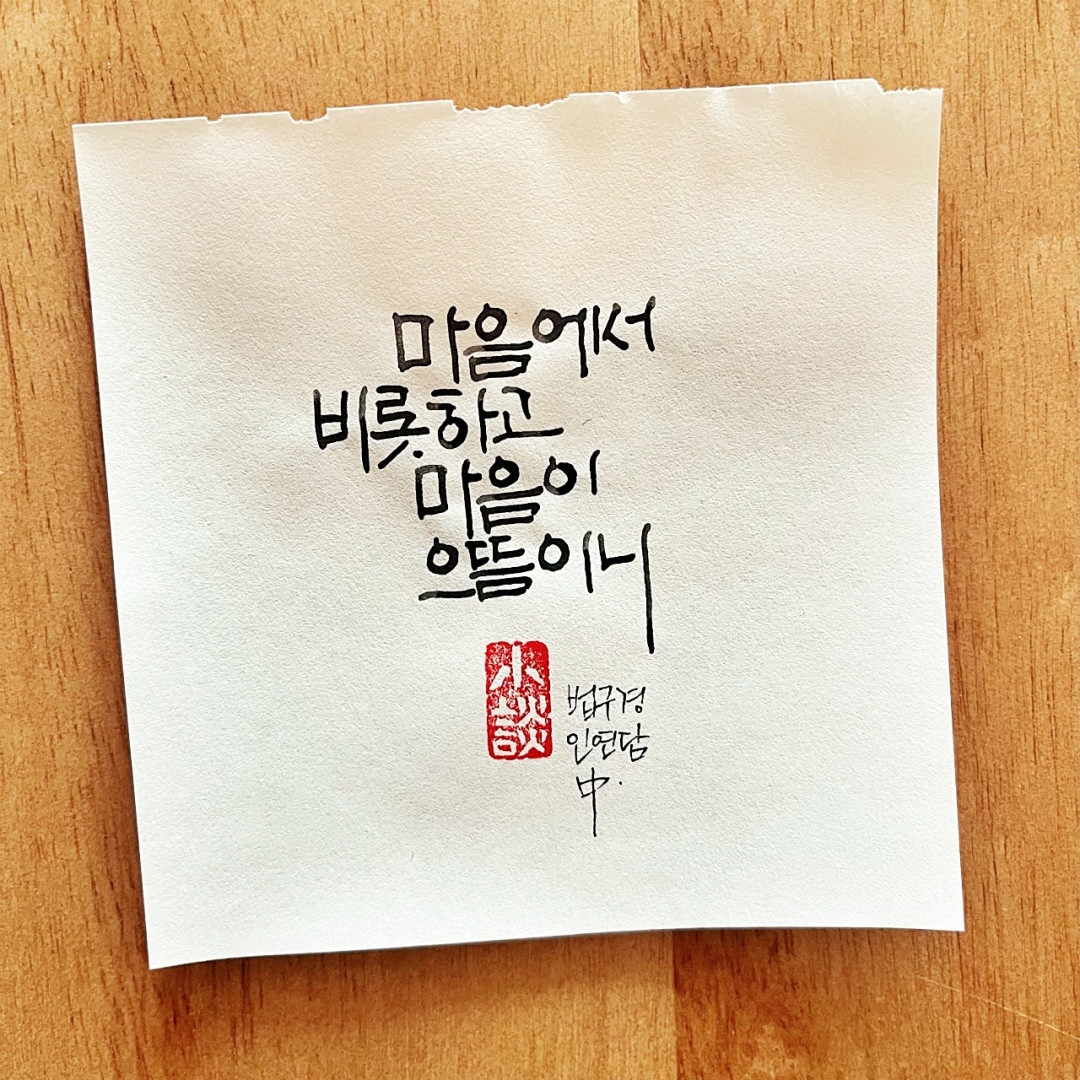 마음에서
비롯하고
마음이
으뜸이니
小談
법구경
인연담
中.